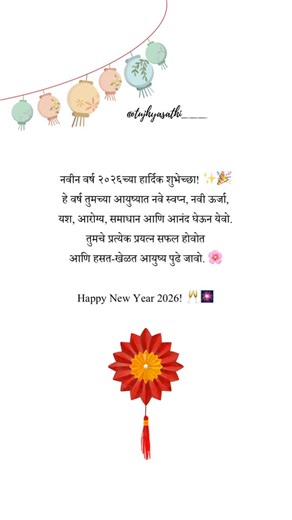 @tujhyasathi___
नवीन वर्ष २०२६च्या हार्दिक शुभेच्छा! ✨🎉
हे वर्ष तुमच्या आयुष्यात नवे स्वप्न, नवी ऊर्जा,
यश, आरोग्य, समाधान आणि आनंद घेऊन येवो.
तुमचे प्रत्येक प्रयत्न सफल होवोत
आणि हसत-खेळत आयुष्य पुढे जावो. 🌸
Happy New Year 2026! 🥂🎆